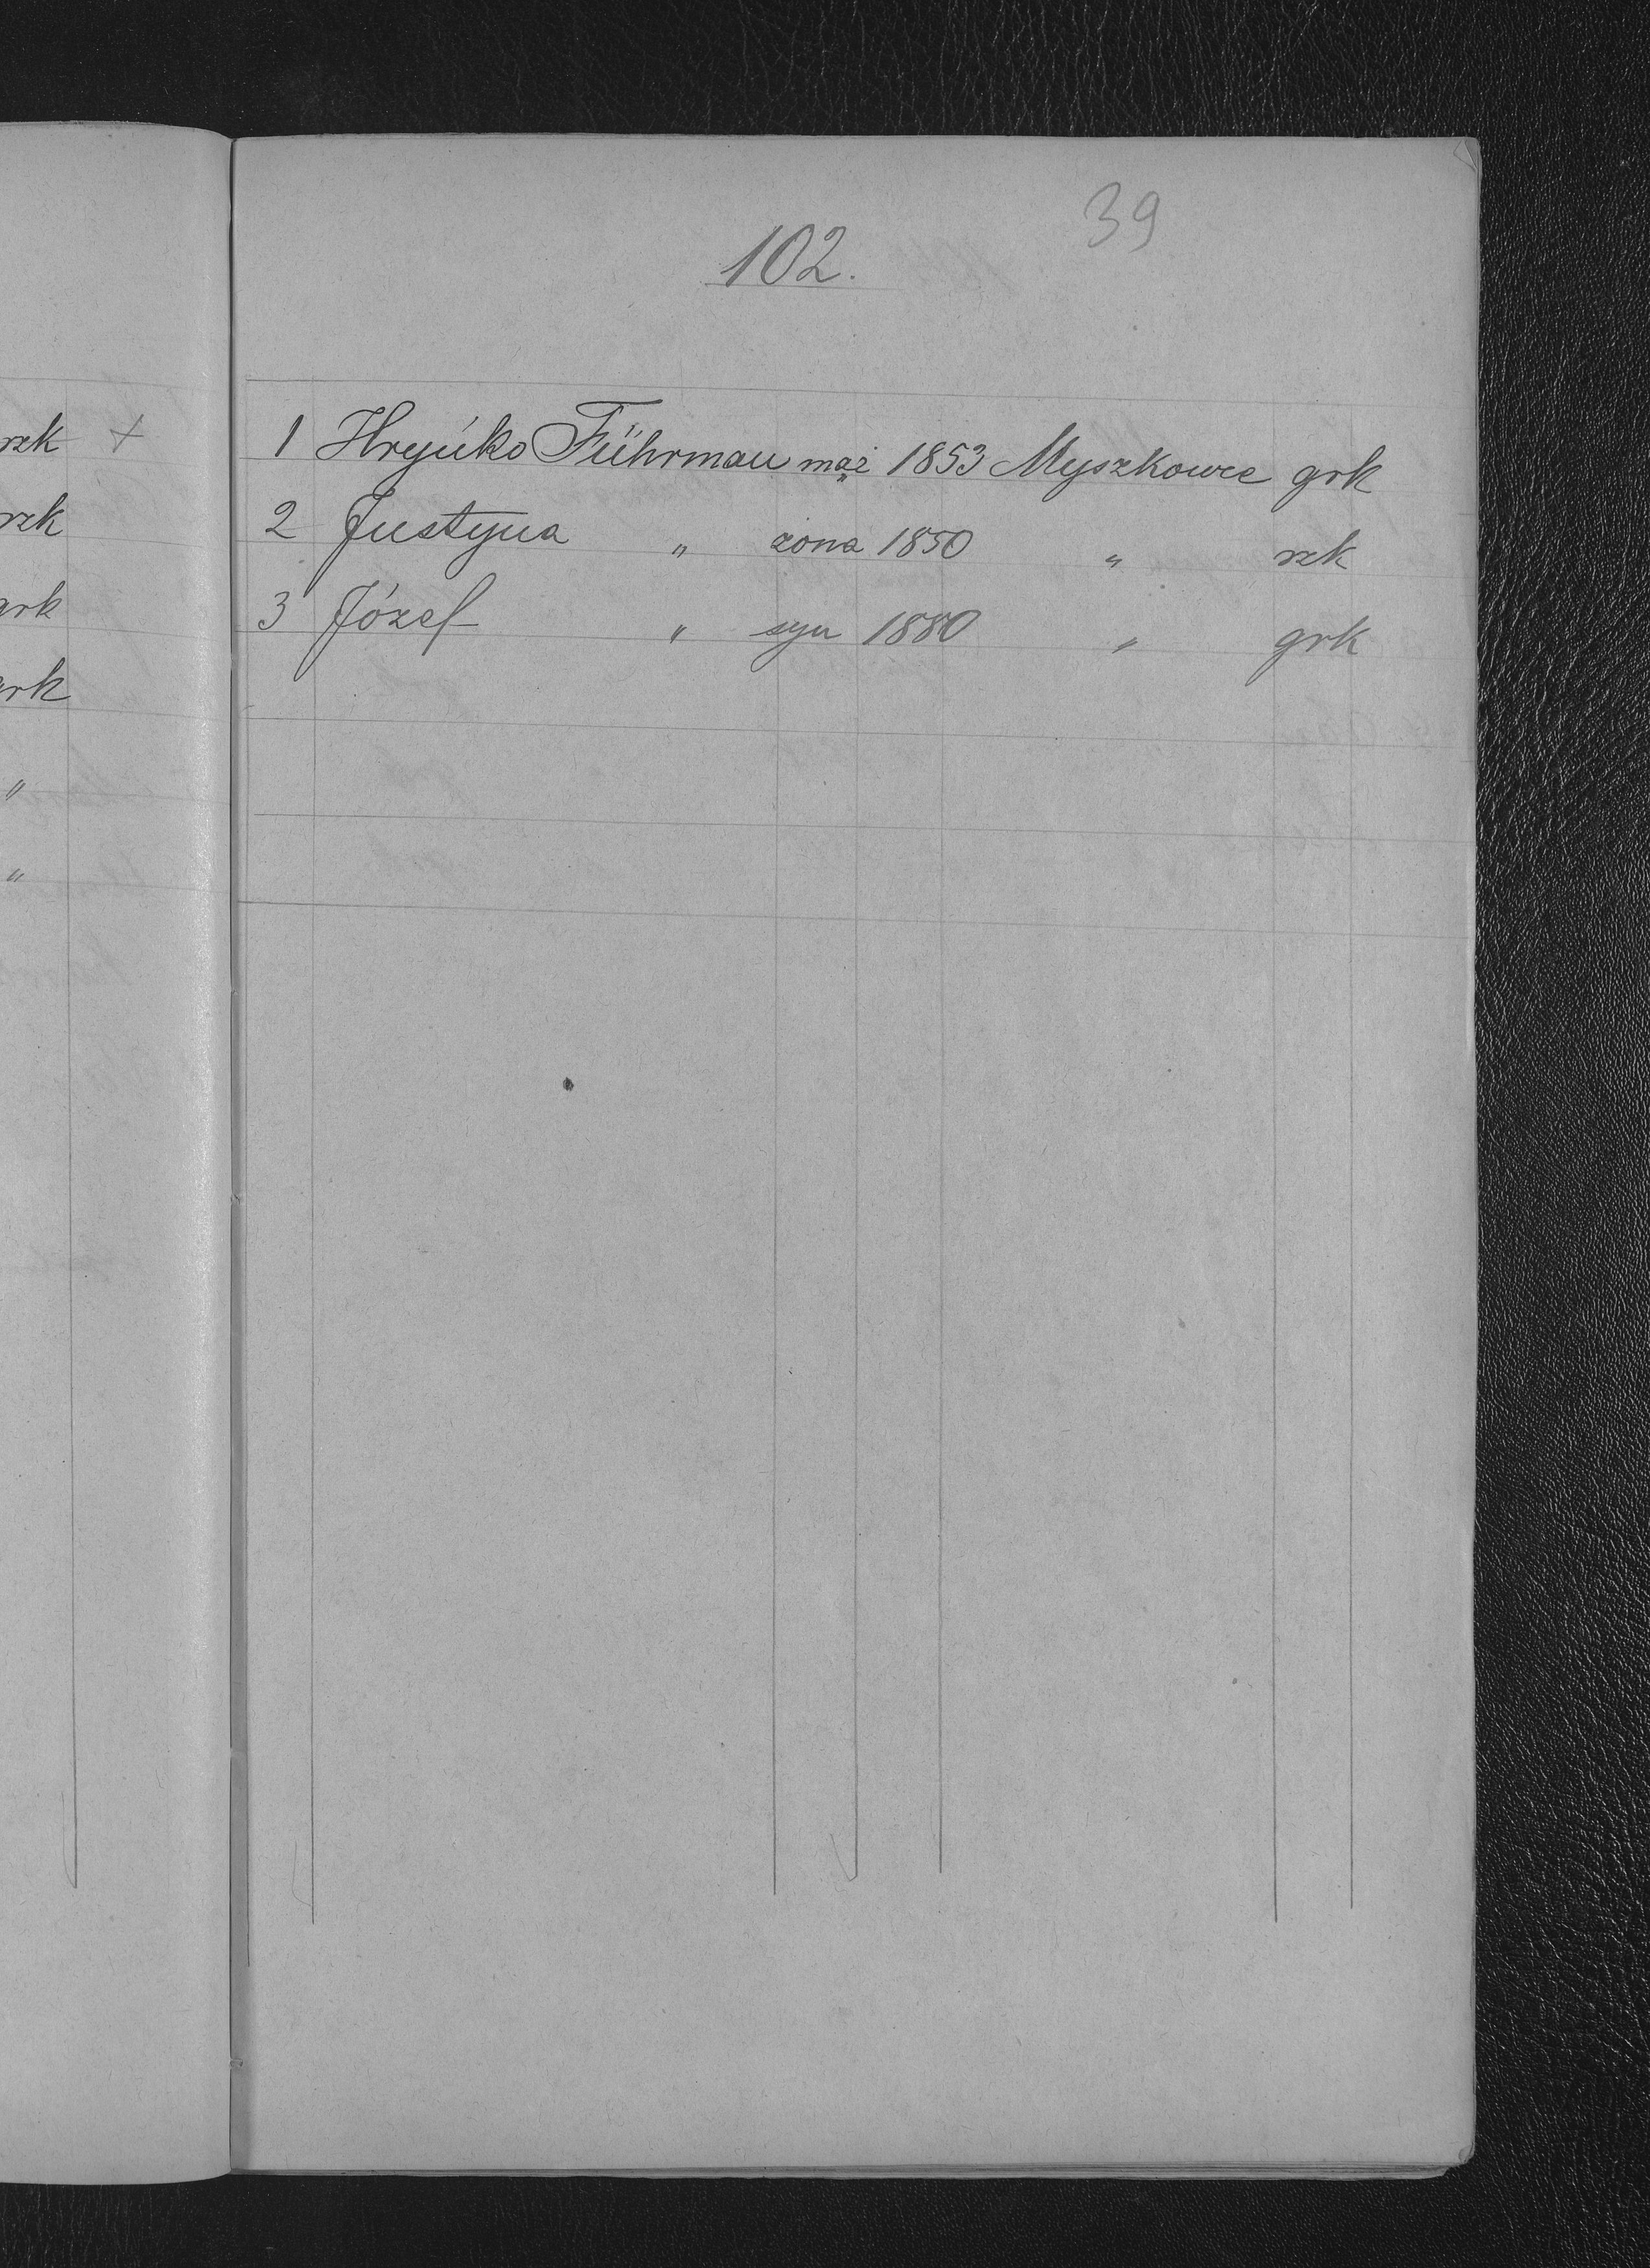 39
102.
1 Hryńko Führman mąż 1853 Myszkowce grk
2 Justyna " żona 1850 " rzk
3 Józef " syn 1880 " grk
rzk +
rzk
grk
grk
"
"